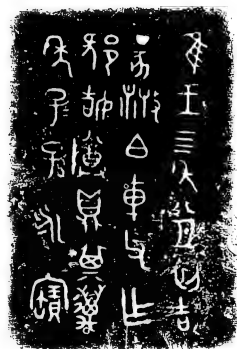 隹王四年八月初吉
丁亥散白車父乍
邪姞尊鼎其萬
年子孫永寶